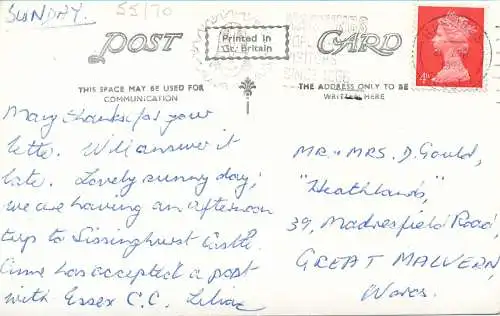 SUNDAY.
55/70
POST
Printed in
Gt. Britain
CARD
SINCE 1066
4D
THIS SPACE MAY BE USED FOR
COMMUNICATION
THE ADDRESS ONLY TO BE
WRITTEN HERE
Many thanks for your
letter. Will answer it
late. Lovely sunny day,
we are having an afternoon
trip to Sissinghurst Castle.
has accepted a post
with Essex C.C. Lilian
MR. & MRS. D. Gould,
"Heathlands",
39, Madresfield Road,
GREAT MALVERN,
Worcs.